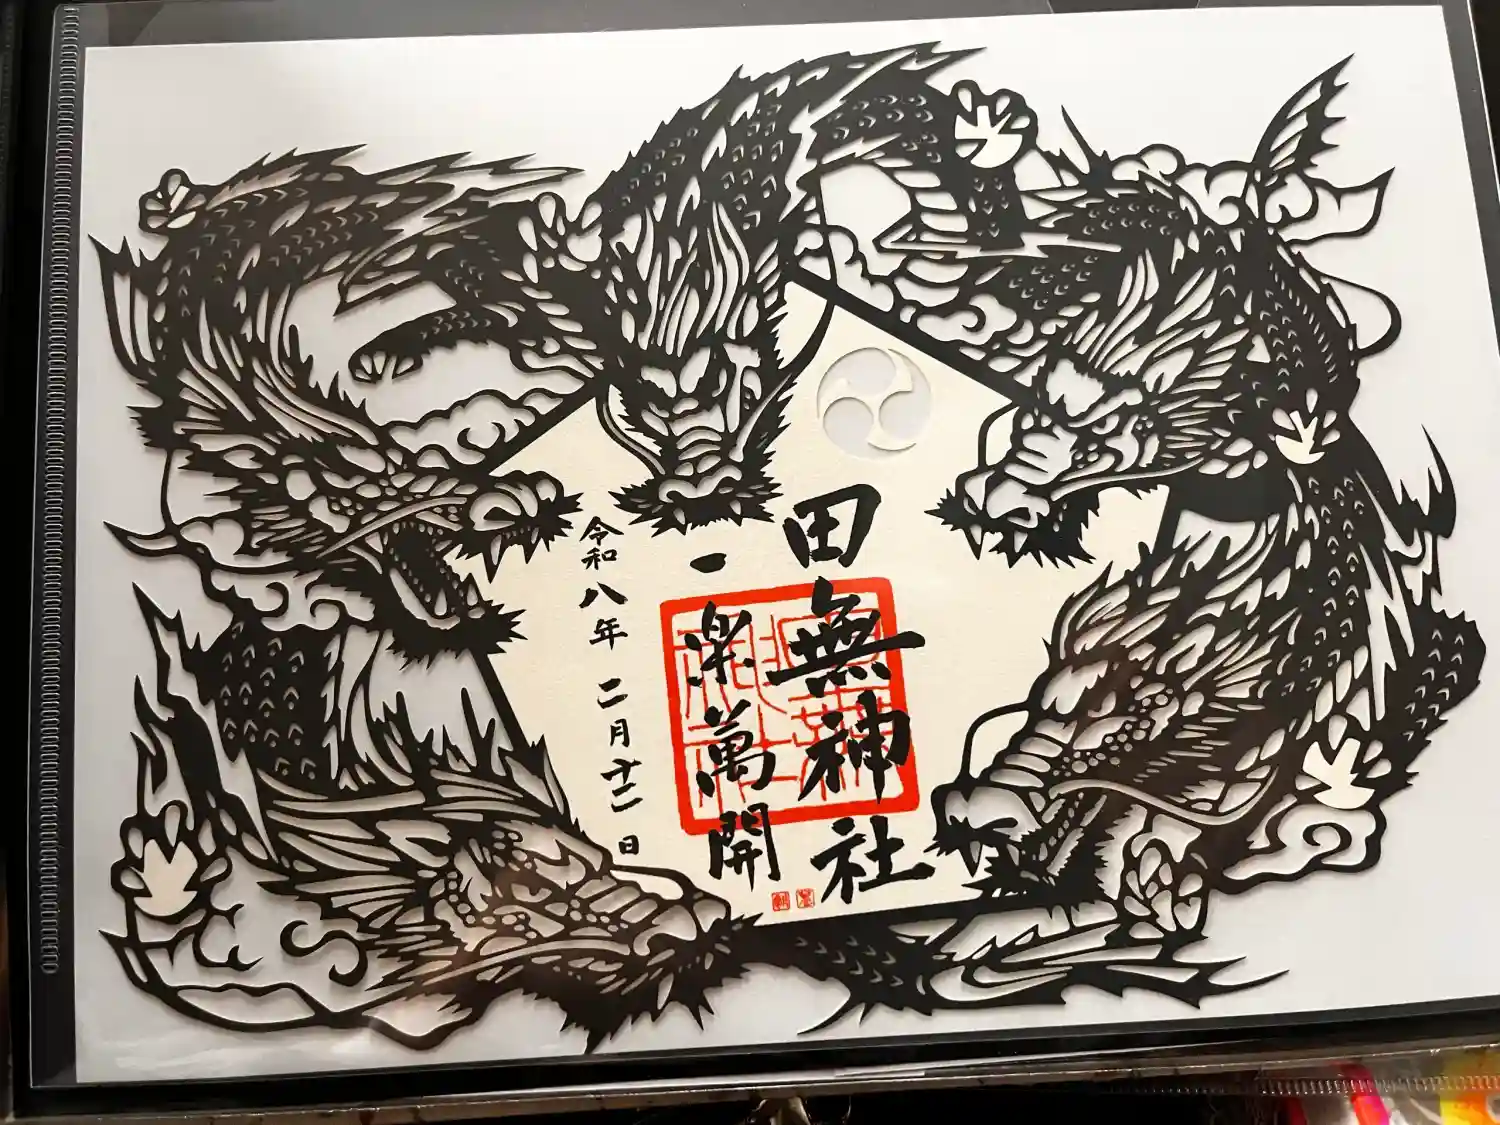 田無神社
一楽萬開
令和八年二月十二日